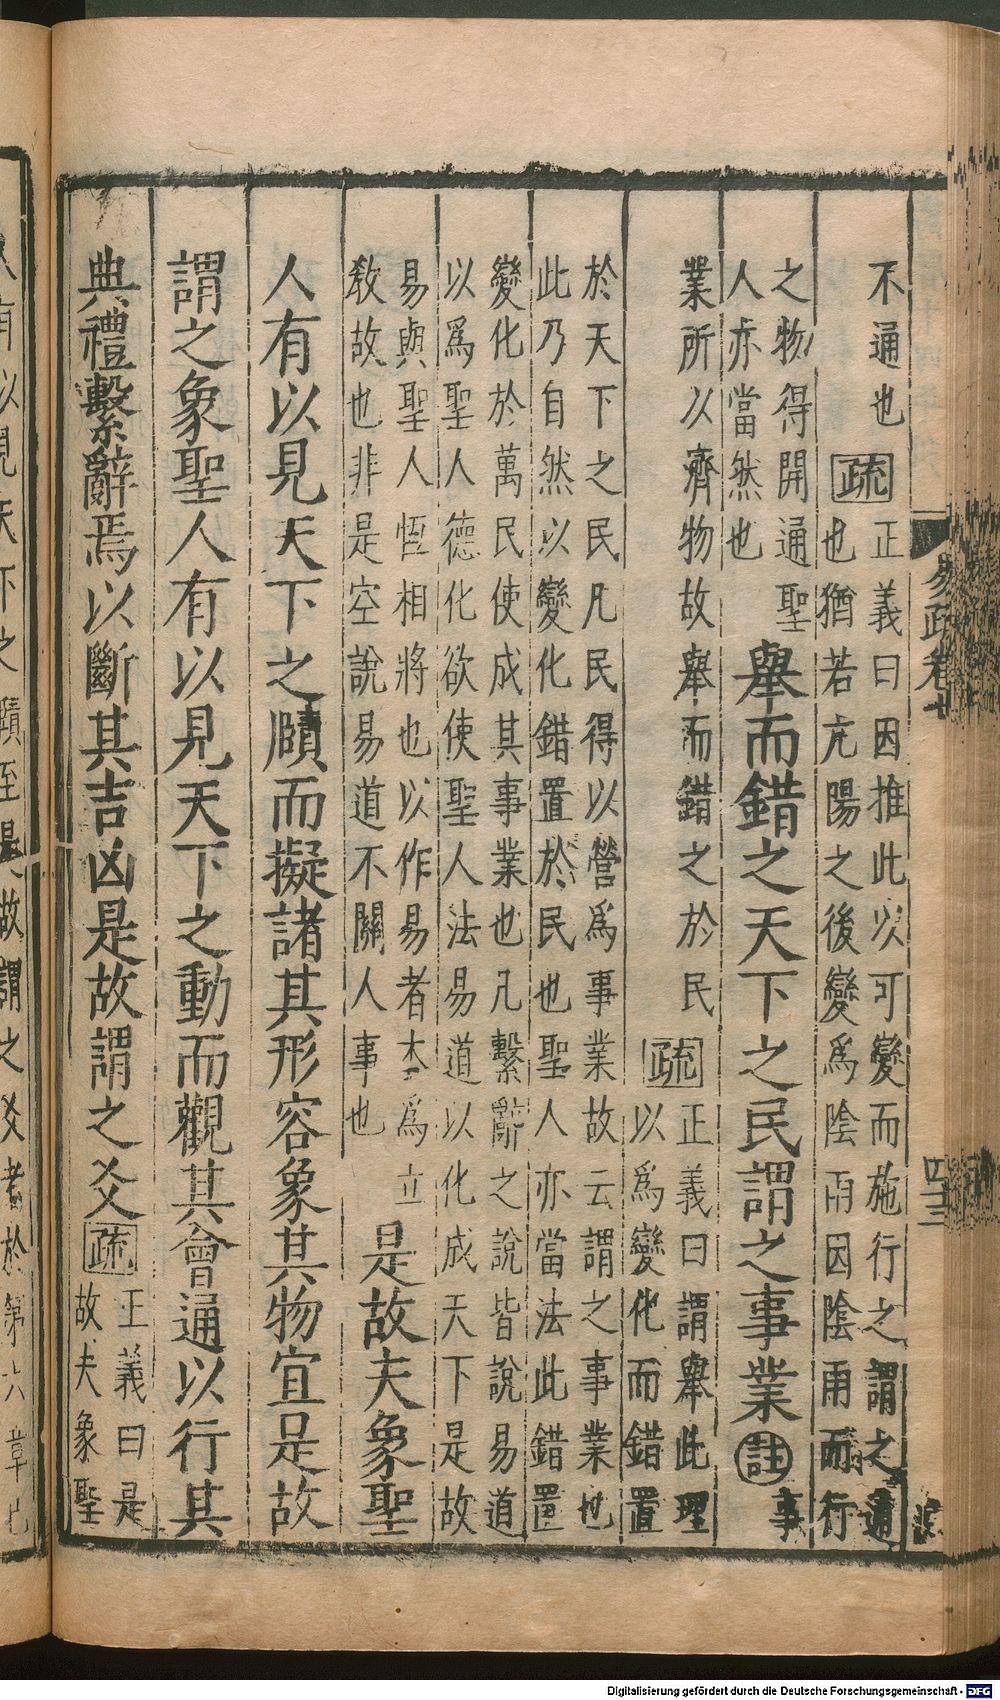 易疏卷
四三
不通也疏正義曰因推此以可變而施行之謂之通
也猶若亢陽之後變爲陰雨因陰雨而行
之物得開通聖
人亦當然也
舉而錯之天下之民謂之事業註事
業所以齊物故舉而錯之於民疏正義曰謂舉此理
以爲變化而錯置
於天下之民凡民得以營爲事業故云謂之事業也
此乃自然以變化錯置於民也聖人亦當法此錯置
變化於萬民使成其事業也凡繫辭之說皆說易道
以爲聖人德化欲使聖人法易道以化成天下是故
易與聖人恆相將也以作易者本爲立
教故也非是空說易道不關人事也
是故夫象聖
人有以見天下之賾而擬諸其形容象其物宜是故
謂之象聖人有以見天下之動而觀其會通以行其
典禮繫辭焉以斷其吉凶是故謂之爻疏正義曰是
故夫象聖
人有以見天下之賾至是故謂之爻者於第六章已
Digitalisierung gefördert durch die Deutsche Forschungsgemeinschaft - DFG